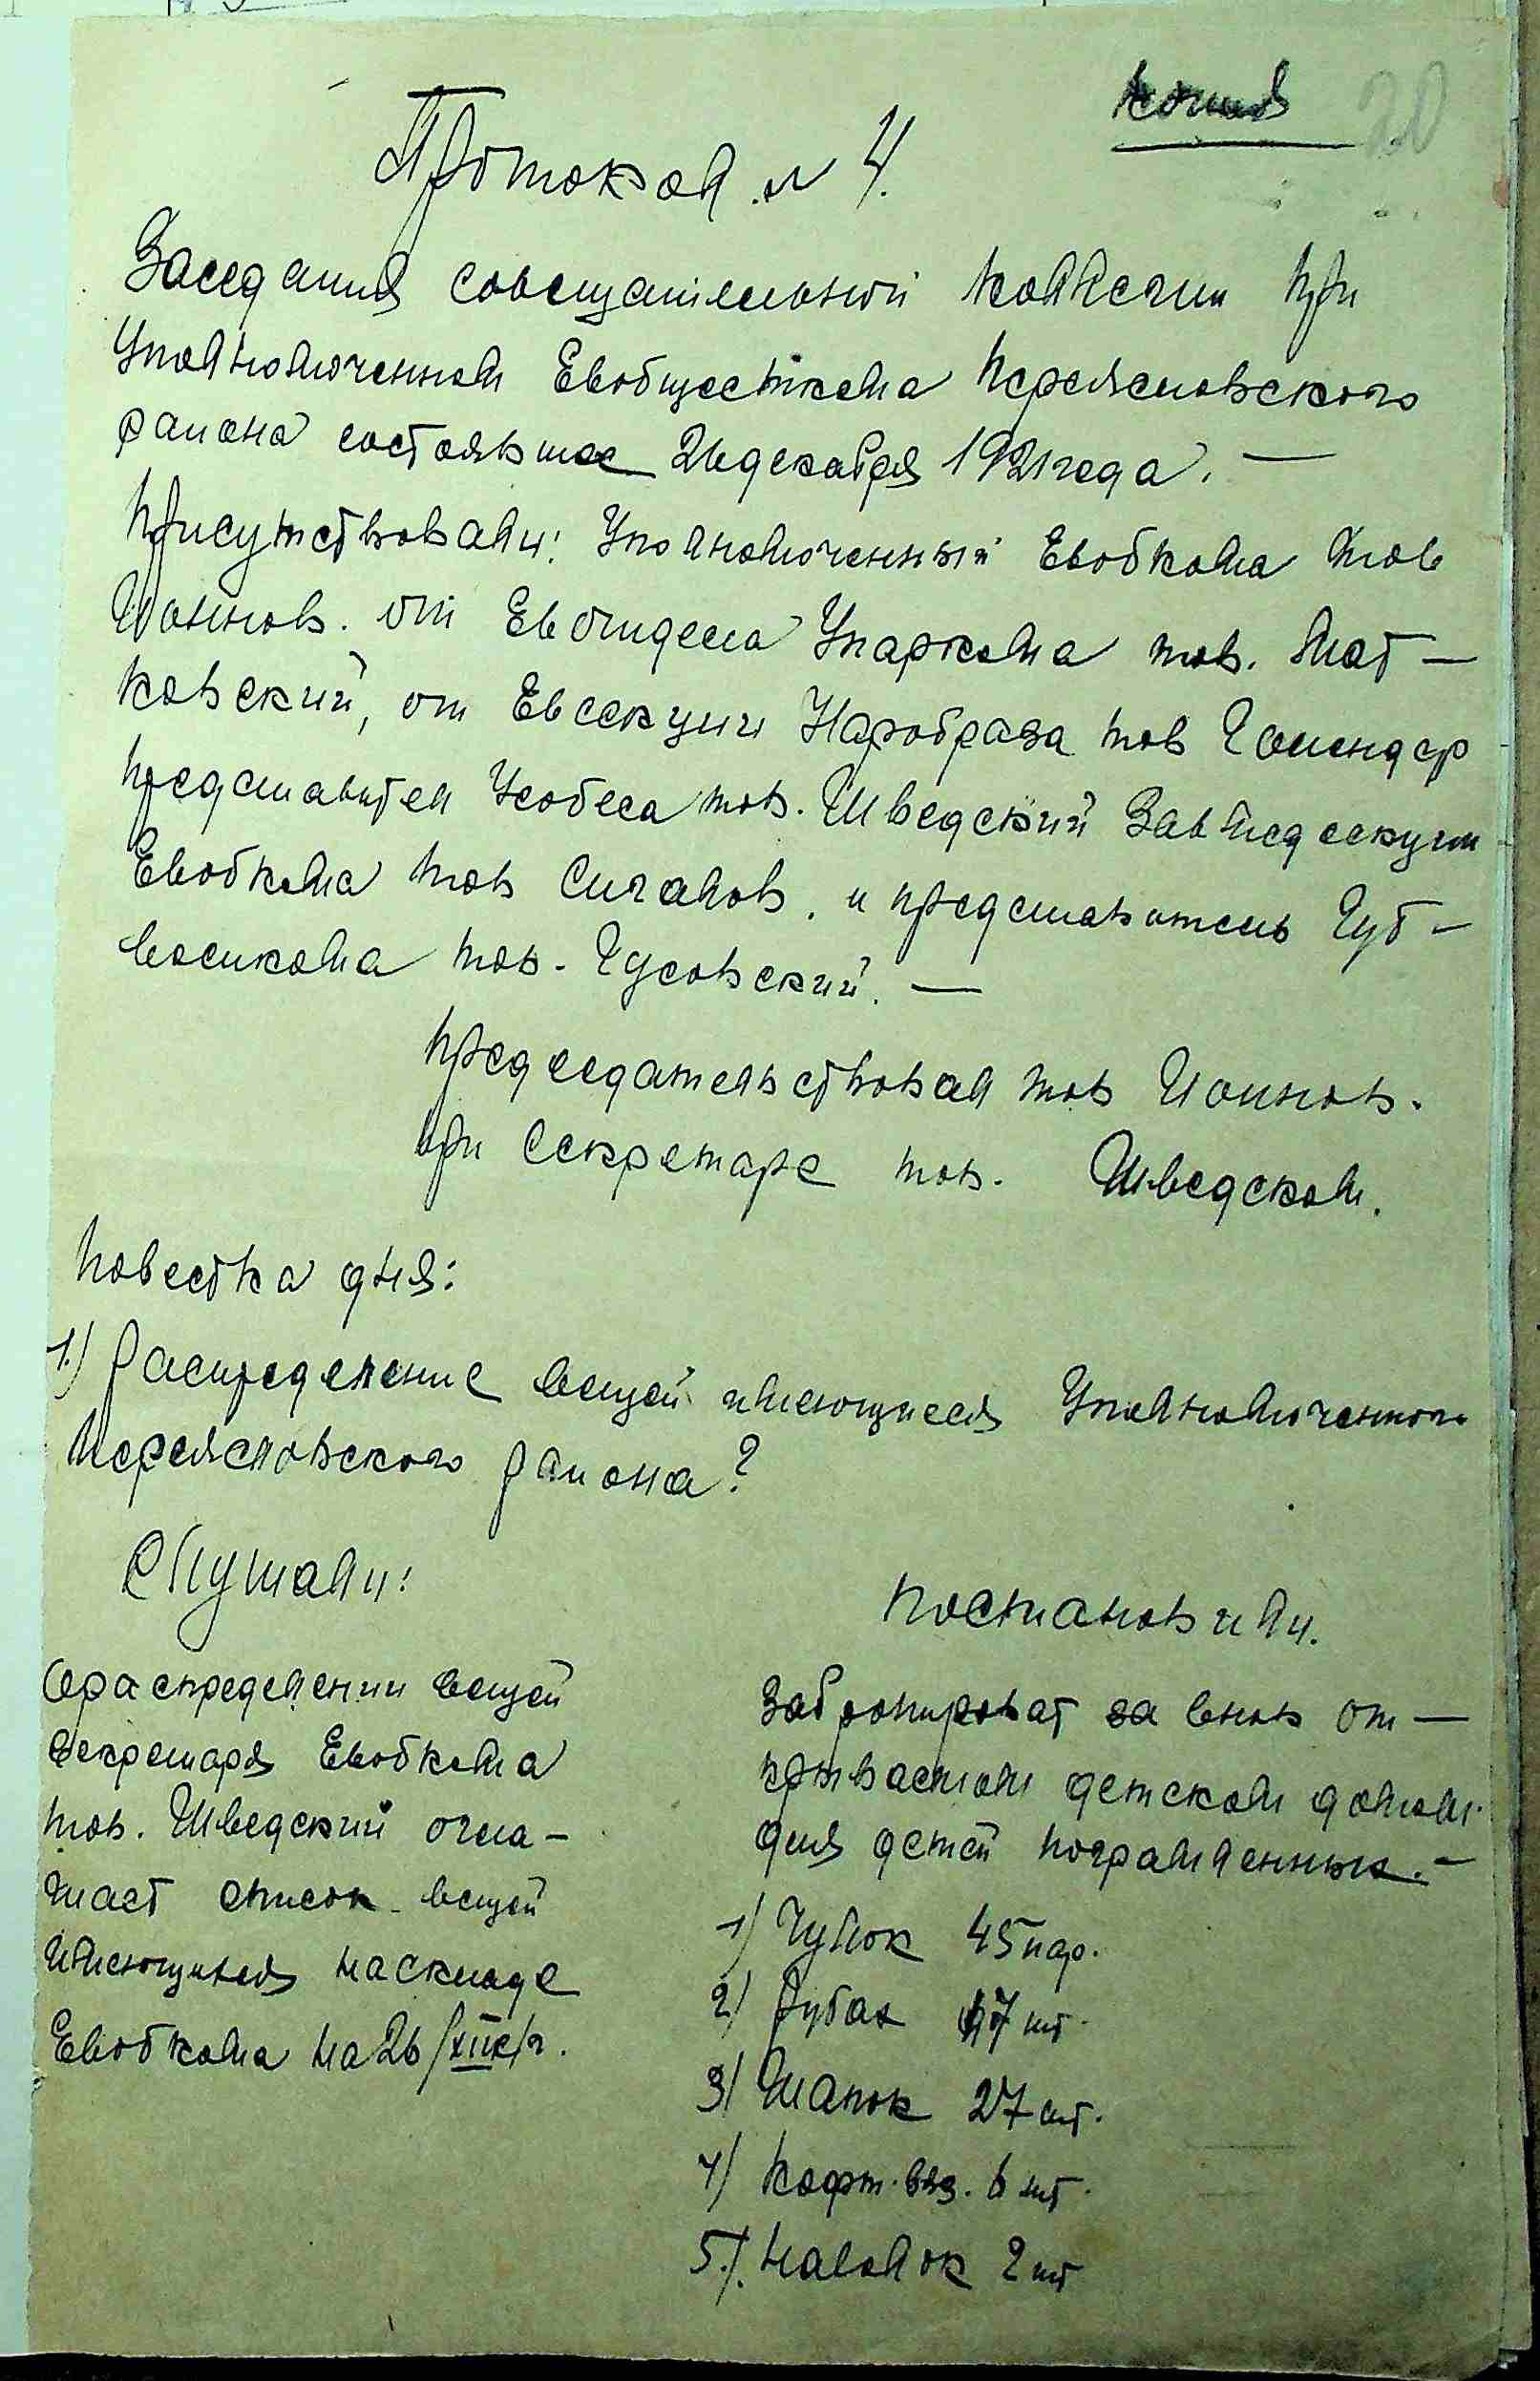 копия
20
Протокол № 4.
Заседания совещательной коллегии при
Уполномоченном Евобщесткома Переяславского
района состоявшее 26 декабря 1921 года. —
Присутствовали: Уполномоченный Евобкома тов
от Евотдела Упаркома тов. Мат —
ковский, от Евсекции Наробраза тов
представител Усобеса тов. Шведский Завмедсекции
Евобкома тов Сигалов, и представитель Губ —
тов. Гусовский. —
Председательствовал тов
при Секретаре тов. Шведском.
Повестка дня:
1.) Распределение вещей имеющиеся Уполномоченного
Переяславского района?
Слушали:
Постановили.
О распределении вещей
Секретаря Евобкома
тов. Шведский огла —
шает список вещей
имеющихся на складе
Евобкома на 26/XII с/г.
Забронироват за внов от —
крываемом детском домом
для детей погромленных. —
1) Чулок 45 пар.
2) Рубах 17 шт.
3) Шапок 27 шт.
4) Кофт. вяз. 6 шт.
5.) Наволок 2 шт